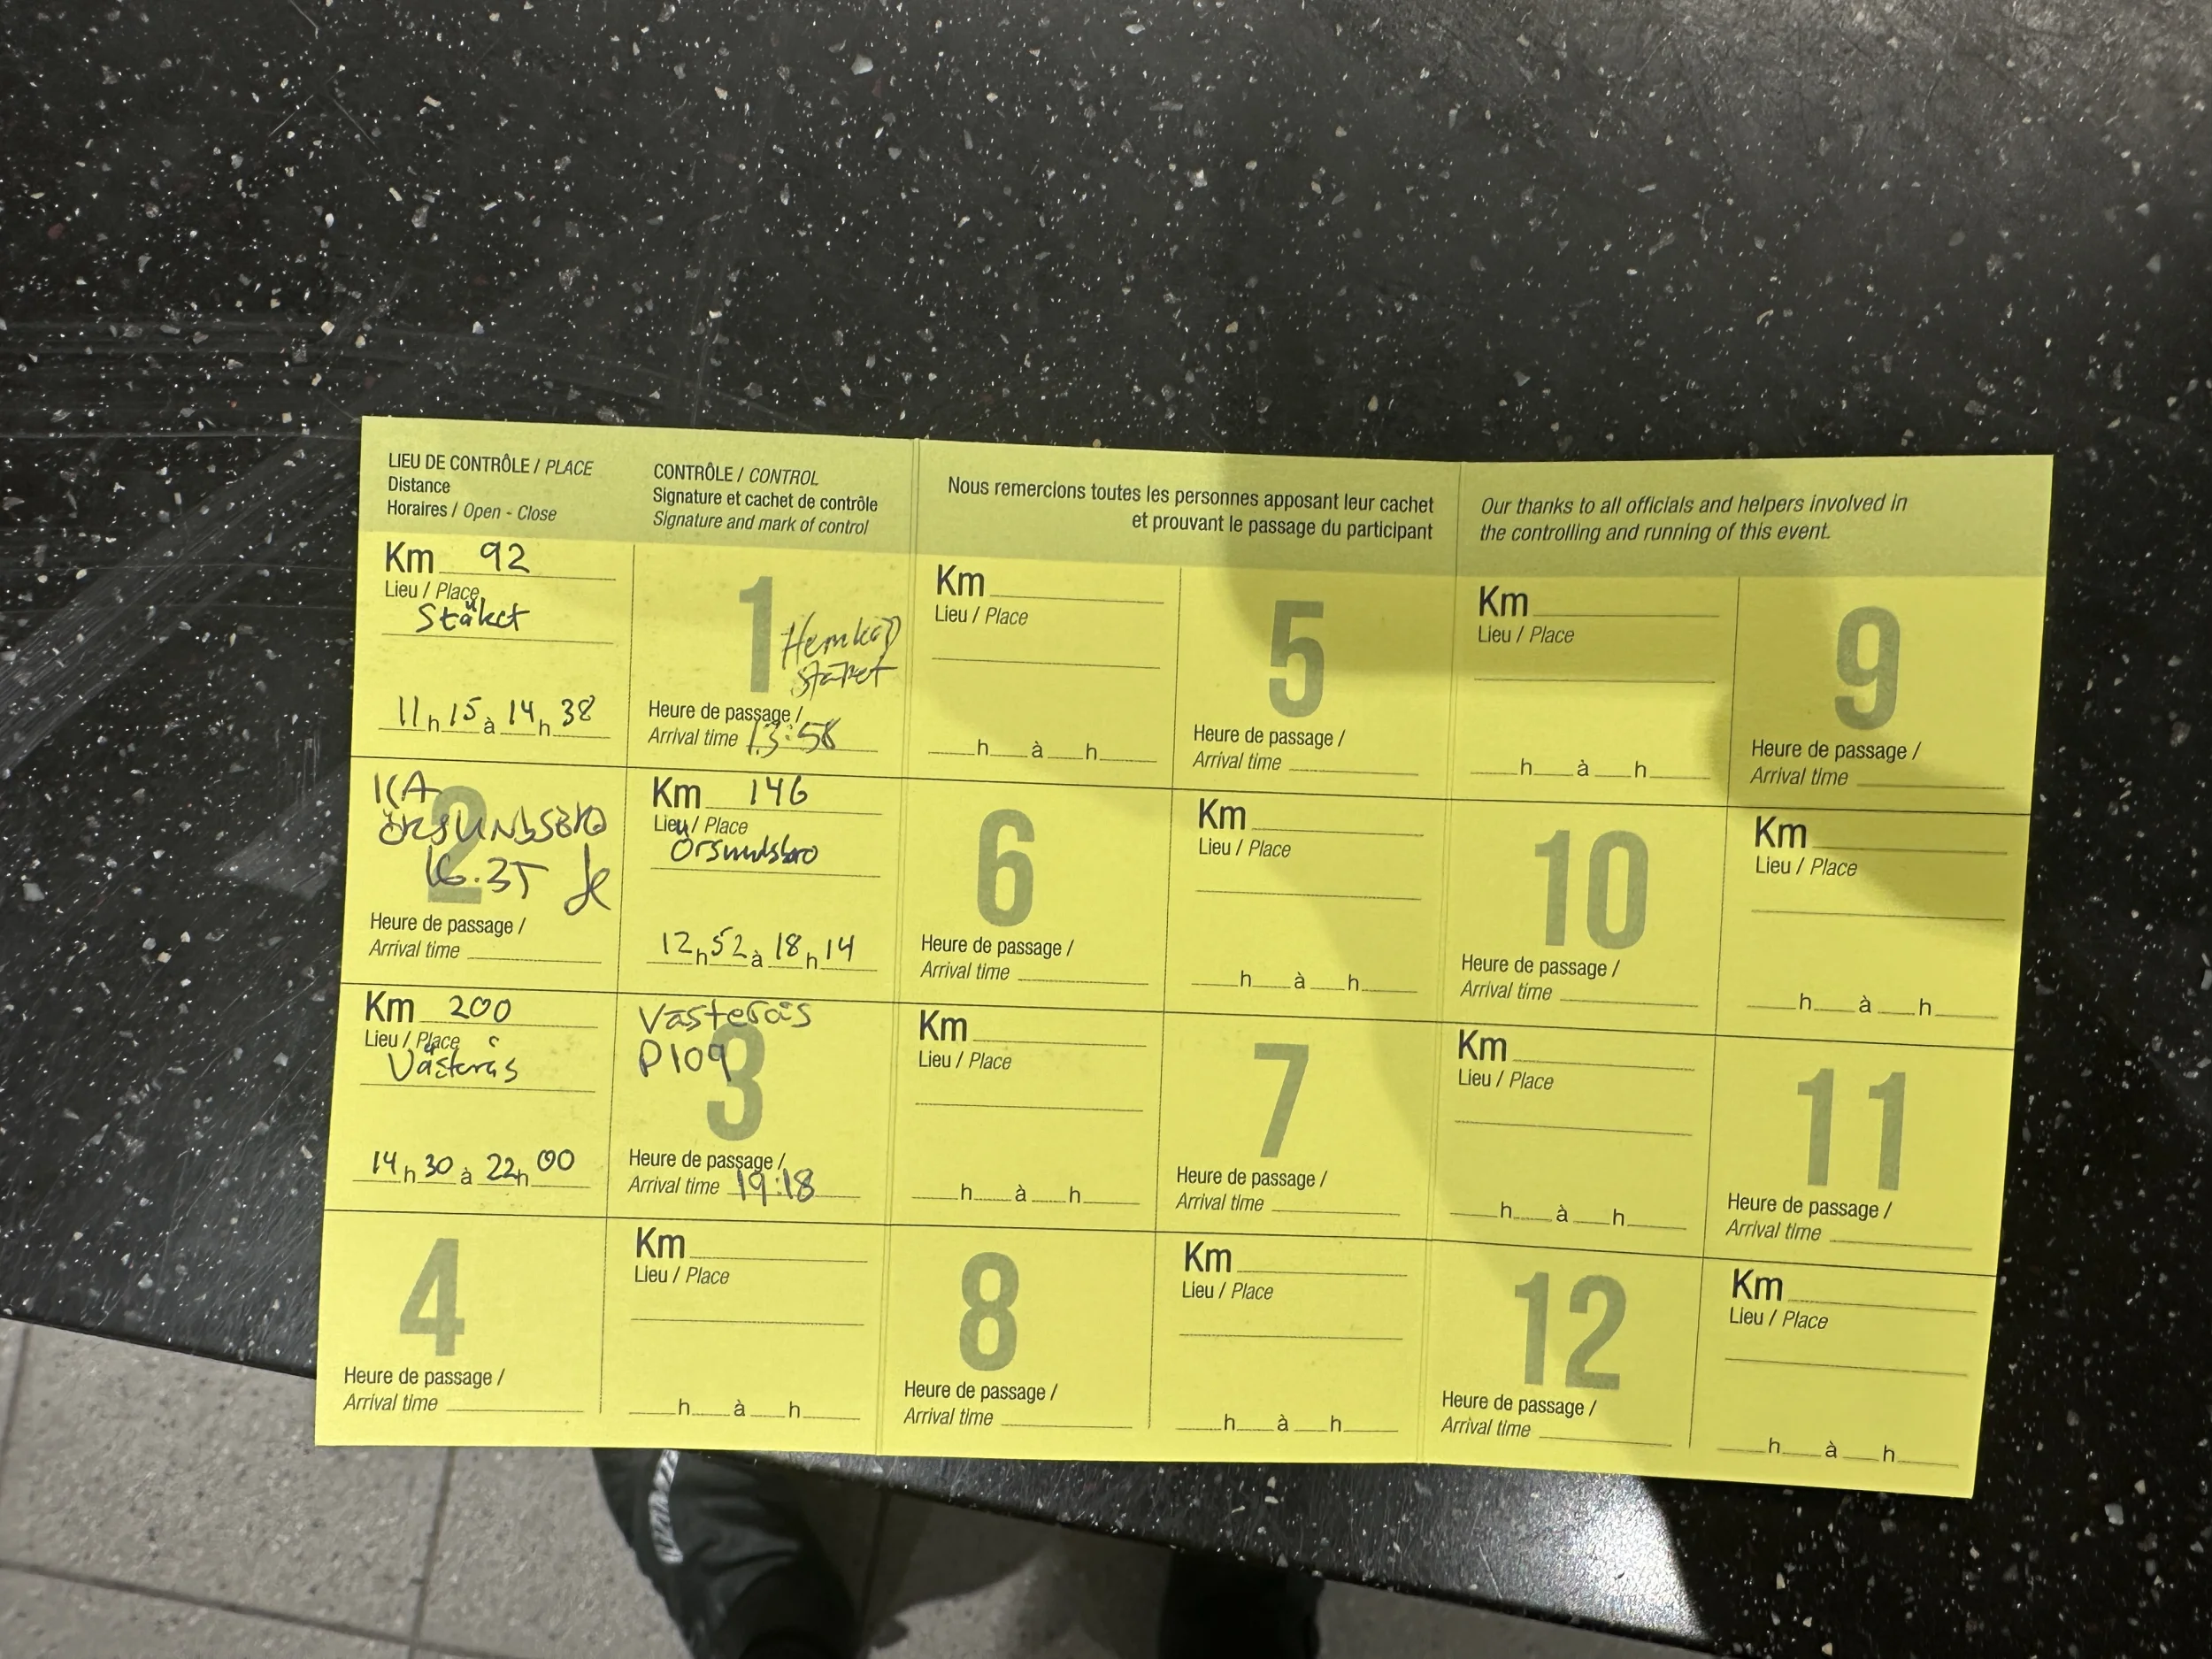 LIEU DE CONTRÔLE / PLACE
Distance
Horaires / Open - Close
CONTRÔLE / CONTROL
Signature et cachet de contrôle
Signature and mark of control
Nous remercions toutes les personnes apposant leur cachet
et prouvant le passage du participant
Our thanks to all officials and helpers involved in
the controlling and running of this event.
Km 92
Lieu / Place
Stäket
11 h 15 à 14 h 38
1
Hemköp
Stäket
Heure de passage /
Arrival time 13:58
2
ICA
ÖRSUNDSBRO
16.35
Heure de passage /
Arrival time
Km 146
Lieu / Place
Örsundsbro
12 h 52 à 18 h 14
Km 200
Lieu / Place
Västerås
14 h 30 à 22 h 00
3
Västerås
P109
Heure de passage /
Arrival time 19:18
4
Heure de passage /
Arrival time
Km
Lieu / Place
h à h
Km
Lieu / Place
h à h
5
Heure de passage /
Arrival time
6
Heure de passage /
Arrival time
Km
Lieu / Place
h à h
Km
Lieu / Place
h à h
7
Heure de passage /
Arrival time
8
Heure de passage /
Arrival time
Km
Lieu / Place
h à h
Km
Lieu / Place
h à h
9
Heure de passage /
Arrival time
10
Heure de passage /
Arrival time
Km
Lieu / Place
h à h
Km
Lieu / Place
h à h
11
Heure de passage /
Arrival time
12
Heure de passage /
Arrival time
Km
Lieu / Place
h à h